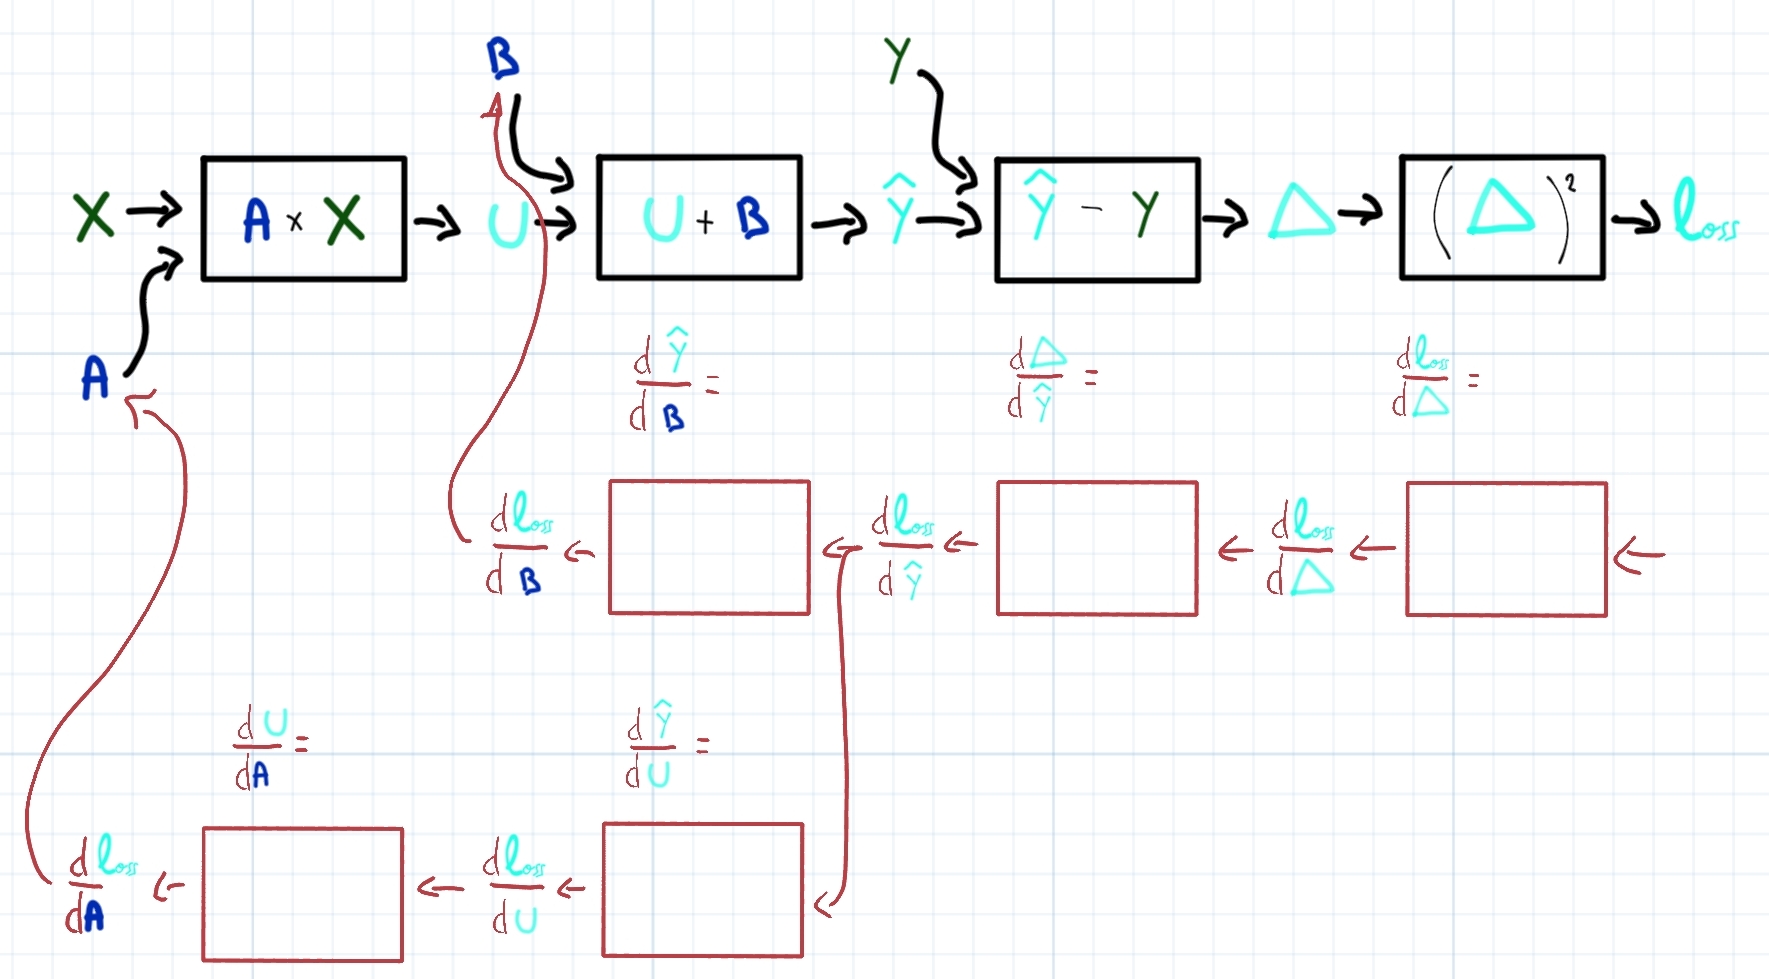 B
Y
X → A × X → U → U + B → Ŷ → Ŷ - Y → Δ → (Δ)² → loss
A
dŶ/dB =
dΔ/dŶ =
dloss/dΔ =
dloss/dB ← ← dloss/dŶ ← ← dloss/dΔ ← ←
dU/dA =
dŶ/dU =
dloss/dA ← ← dloss/dU ← ←